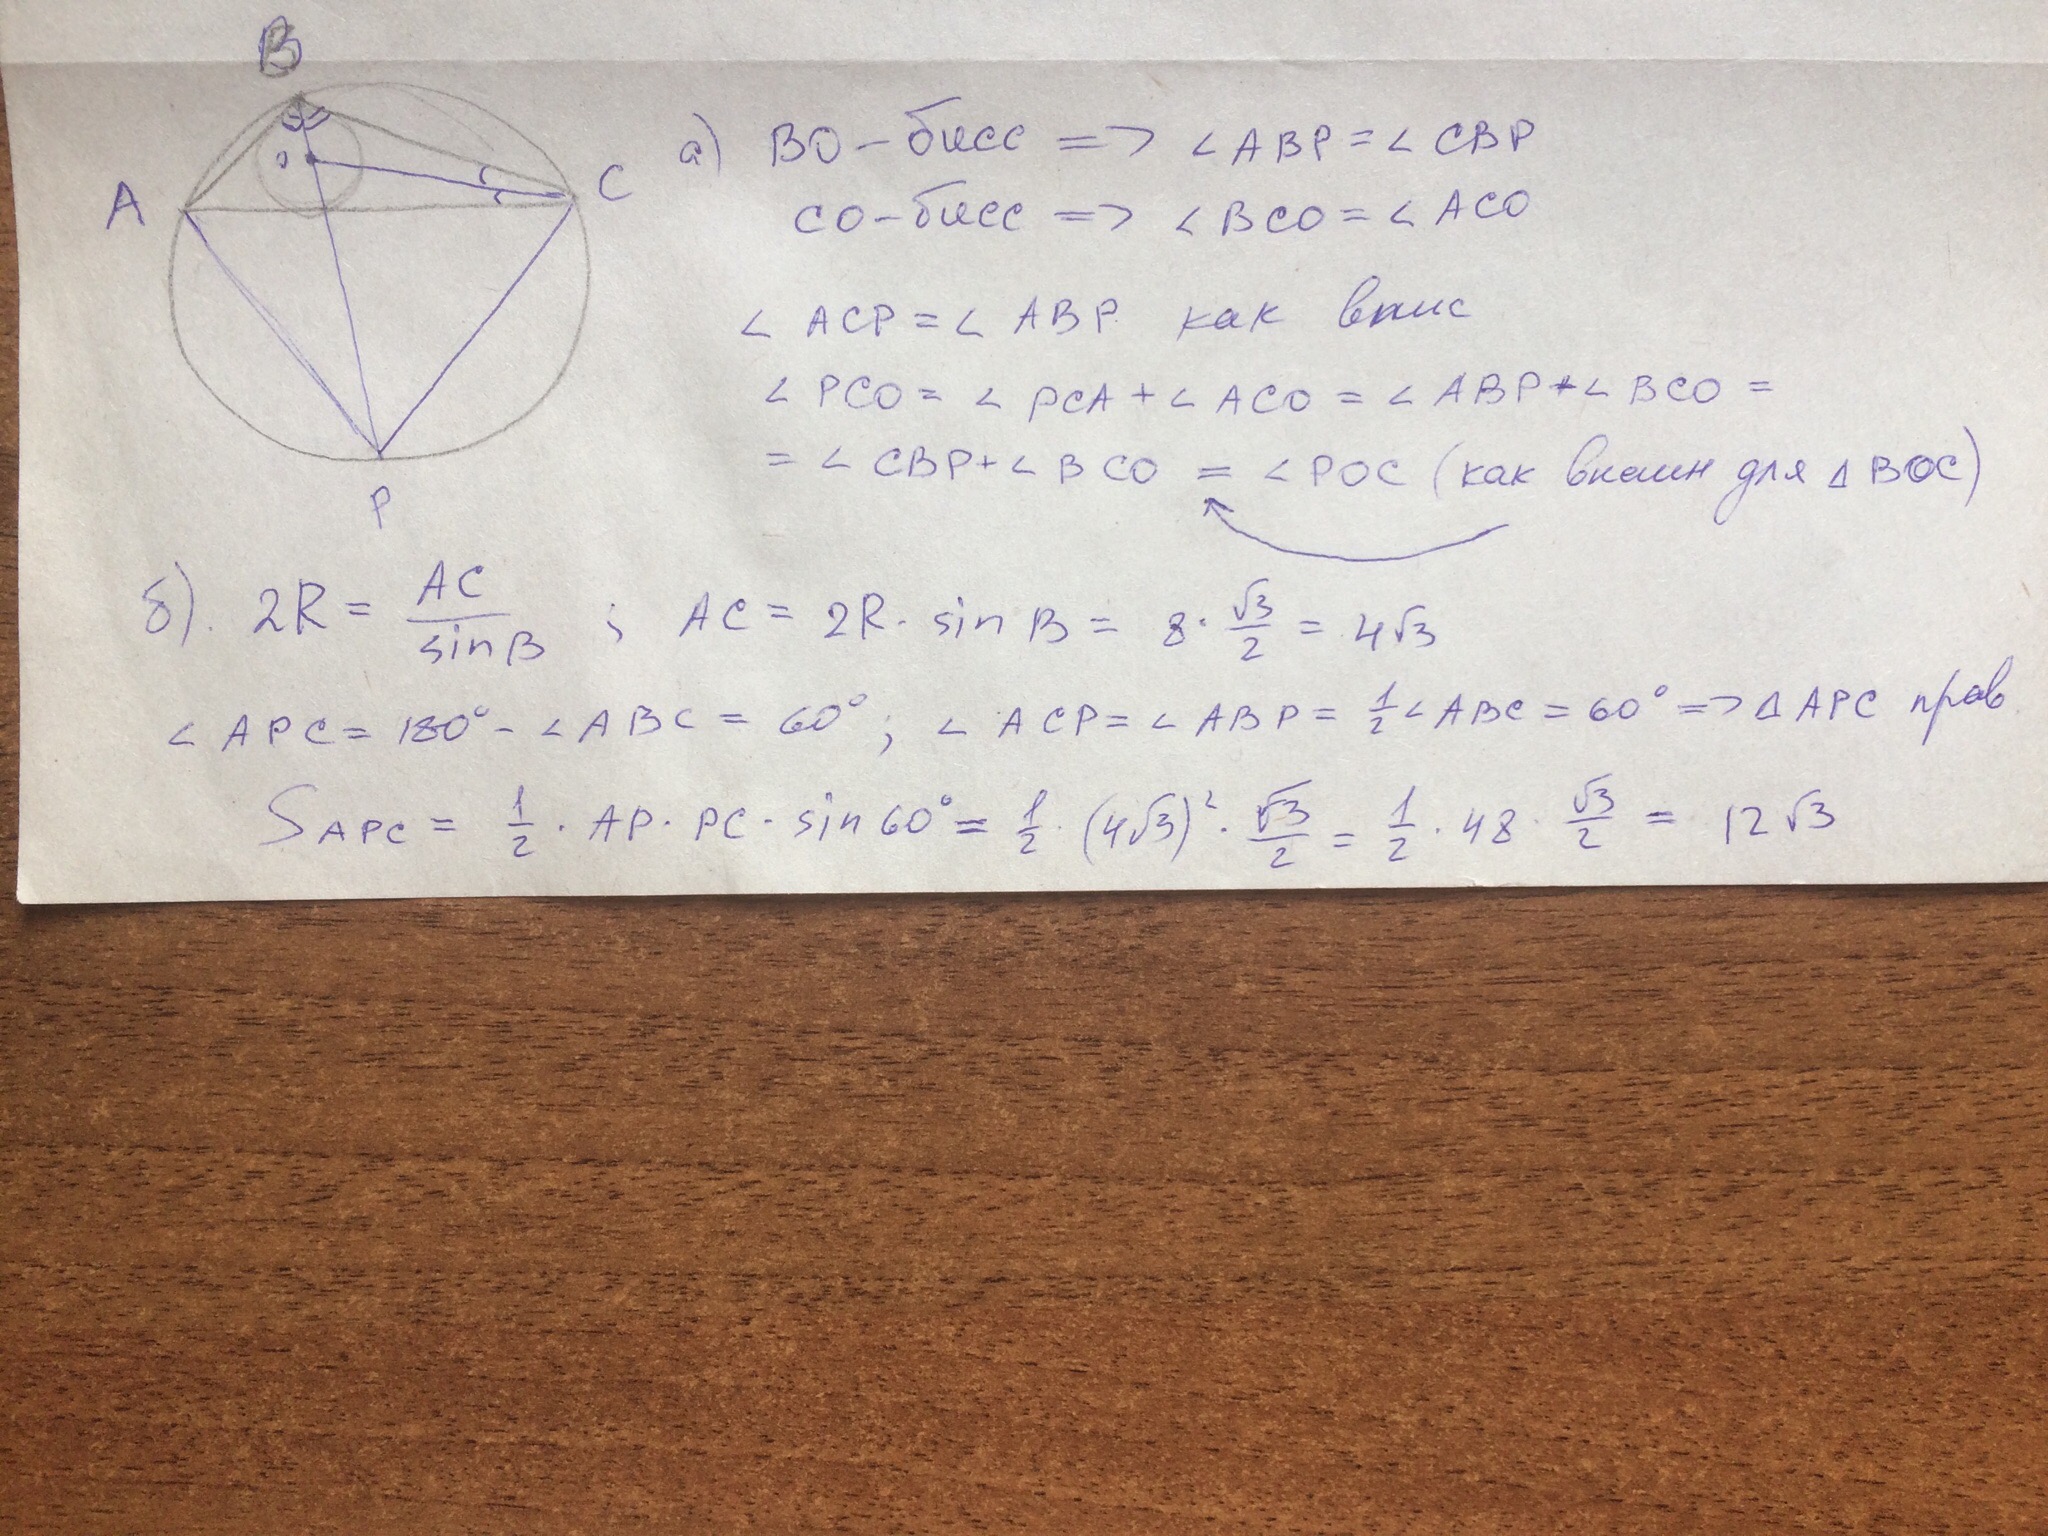 B
O
A
C
P
а) BO - бисс => ∠ABP = ∠CBP
CO - бисс => ∠BCO = ∠ACO
∠ACP = ∠ABP как впис
∠PCO = ∠PCA + ∠ACO = ∠ABP + ∠BCO =
= ∠CBP + ∠BCO = ∠POC (как внешн для △BOC)
б). 2R = AC/sinB ; AC = 2R · sin B = 8 · √3/2 = 4√3
∠APC = 180° - ∠ABC = 60° ; ∠ACP = ∠ABP = 1/2 ∠ABC = 60° => △APC прав
S APC = 1/2 · AP · PC · sin 60° = 1/2 · (4√3)² · √3/2 = 1/2 · 48 · √3/2 = 12√3